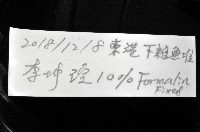 2018/12/8 東港下雜魚堆
李坤瑄 10% Formalin
Fixed